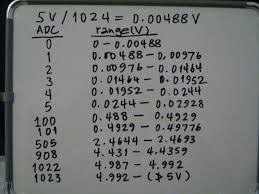 5V/1024 = 0.00488V
ADC range(V)
0 0 - 0.00488
1 0.00488 - 0.00976
2 0.00976 - 0.01464
3 0.01464 - 0.01952
4 0.01952 - 0.0244
5 0.0244 - 0.02928
100 0.488 - 0.4929
101 0.4929 - 0.49776
505 2.4644 - 2.4693
908 4.431 - 4.4359
1022 4.987 - 4.992
1023 4.992 - (5V)